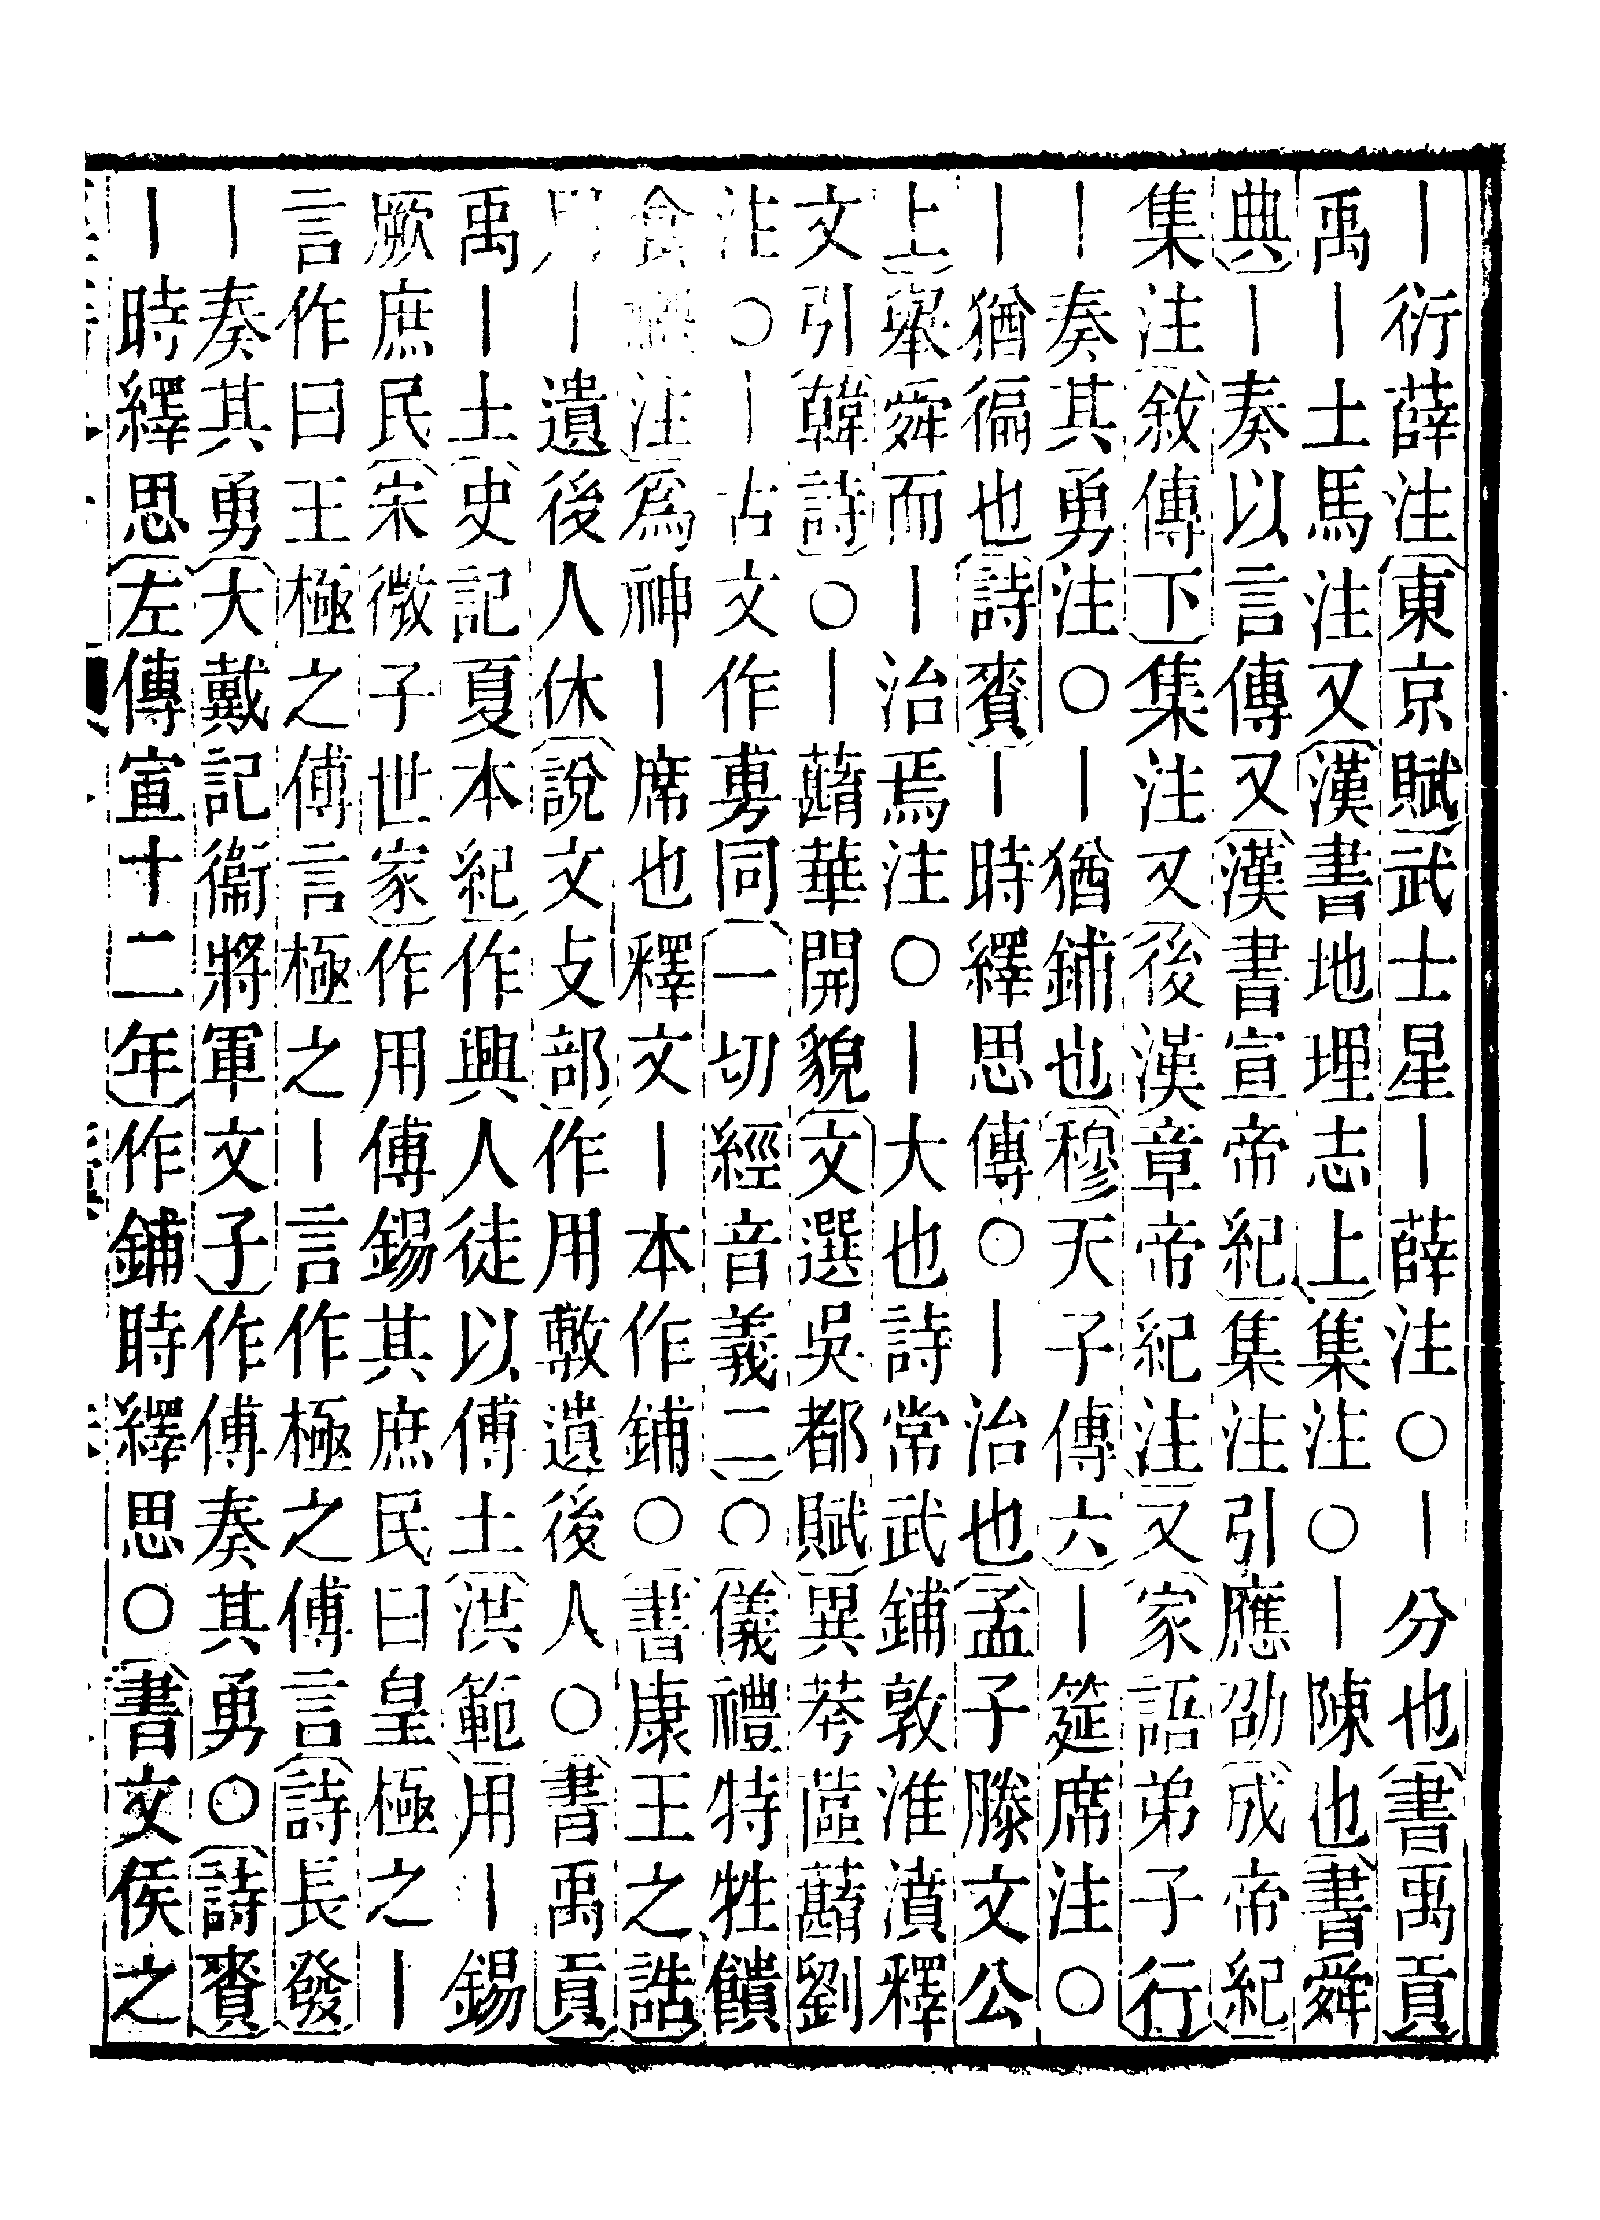 丨衍薛注東京賦武士星丨薛注○丨分也書禹貢
禹丨土馬注又漢書地理志上集注○丨陳也書舜
典丨奏以言傳又漢書宣帝紀集注引應劭成帝紀
集注敘傳下集注又後漢章帝紀注又家語弟子行
丨奏其勇注○丨猶鋪也穆天子傳六丨筵席注○
丨猶徧也詩賚丨時繹思傳○丨治也孟子滕文公
上舉舜而丨治焉注○丨大也詩常武鋪敦淮濆釋
文引韓詩○丨蘛華開貌文選吳都賦異荂蓲蘛劉
注○丨古文作尃同一切經音義二○儀禮特牲饋
食禮注爲神丨席也釋文丨本作鋪○書康王之誥
用丨遺後人休說文攴部作用敷遺後人○書禹貢
禹丨土史記夏本紀作興人徒以傅土洪範用丨錫
厥庶民宋微子世家作用傅錫其庶民曰皇極之丨
言作曰王極之傅言極之丨言作極之傅言詩長發
丨奏其勇大戴記衞將軍文子作傅奏其勇○詩賚
丨時繹思左傳宣十二年作鋪時繹思○書文侯之